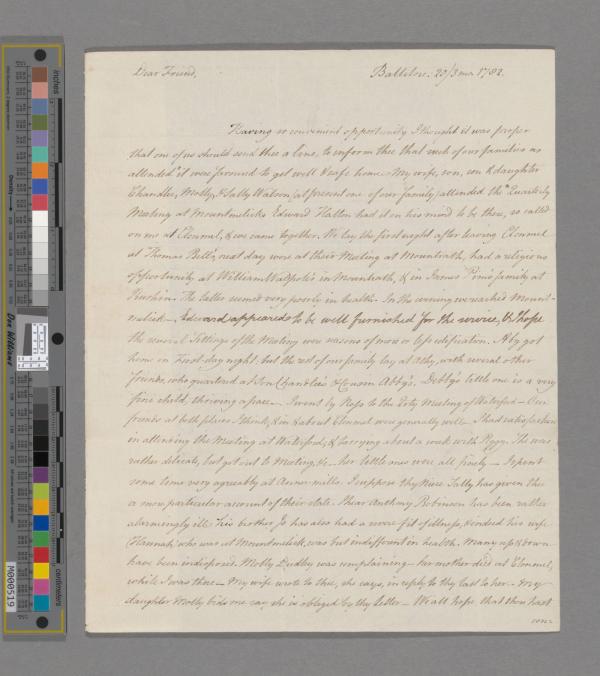 Dear Friend,
Ballitore: 20/3mo 1782.
Having so convenient opportunity I thought it was proper
that one of us should send thee a line, to inform thee that such of our families as
attended it were favoured to get well & safe home. My wife, son, son & daughter
Chandlee, Molly, & Sally Watson (at present one of our family) attended the Quarterly
Meeting at Mountmelick: Edward Hatton had it on his mind to be there, so called
on me at Clonmel, & we came together. We lay the first night after leaving Clonmel
at Thomas Pell's, next day were at their Meeting at Mountrath, had a religious
opportunity at William Walpole's in Mountrath, & in James Pim's family at
The latter seemed very poorly in health. In the evening we reached Mount-
melick. Edward appeared to be well furnished for the service, & I hope
the several Sittings of the Meeting were seasons of more or less edification. Aby got
home on First day night, but the rest of our family lay at Athy, with several other
friends, who quartered at Son Chandlee's & Cousin Abby's. Debby's little one is a very
fine child, thriving apace. I went by Ross to the Meeting of Waterford. Our
friends at both places I think, & in & about Clonmel were generally well. I had satisfaction
in attending the Meeting at Waterford, & tarrying about a week with Peggy. She was
rather delicate, but got out to Meeting, &c. her little ones were all finely. I spent
some time very agreeably at Anner-mills. I suppose thy Niece Sally has given thee
a more particular account of their state. I hear Anthony Robinson has been rather
alarmingly ill. his brother Jo has also had a severe fit of illness, & indeed his wife
(Hannah) who was at Mountmelick, was but indifferent in health. Many up & down
have been indisposed. Molly Dudley was complaining. her mother died at Clonmel,
while I was there. My wife wrote to thee, she says, in reply to thy last to her. My
daughter Molly bids me say she is obliged by thy Letter. We all hope that thou hast
inches
centimeters
Don Williams
M000519